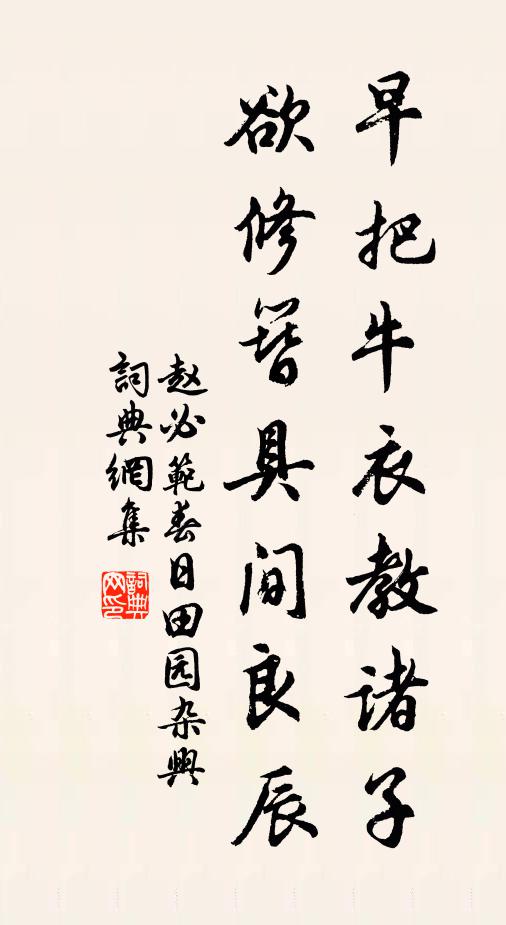 早把牛衣教诸子
欲修簪具间良辰
赵必範春日田园杂興
詞典網集
詞典网印